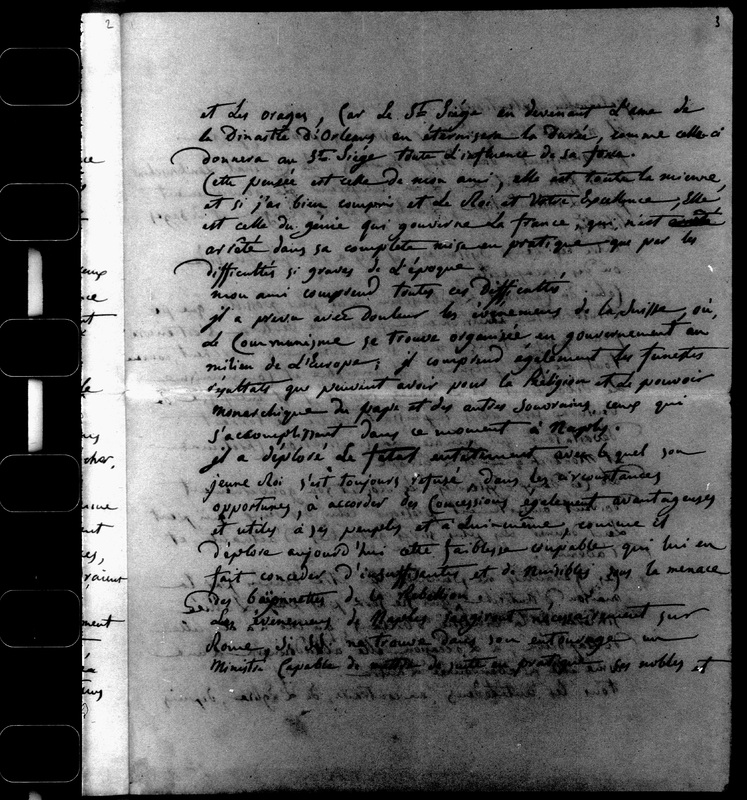 2
3
et des orages, Car le St Siége en devenant l'ame de
la Dinastie D'Orleans en éternisera la Durée, comme celle-ci
donnera au St. Siége toute l'influence de sa force.
Cette pensée est celle de mon ami, elle est toute la mienne,
et si j'ai bien compris et le Roi et Votre Excellence, Elle
est celle du génie qui gouverne la france, qui n'est
arrêté dans sa complete mise en pratique que par les
difficultés si graves de l'époque.
mon ami comprend toutes ces difficultés
il a prevu avec douleur les évènemens de la Suisse, où,
Le Communisme se trouve organisée en gouvernement au
milieu de L'Europe; il comprend également les funestes
résultats que peuvent avoir pour la Réligion et le pouvoir
monarchique du pape et des autres Souverains ceux qui
s'accomplissent dans ce moment à Naples.
il a déploré le fatal entêtement avec lequel son
jeune Roi s'est toujours refusé, dans les circonstances
opportunes, à accorder des Concessions également avantageuses
et utiles à ses peuples et à lui même, comme il
déplore aujourd'hui cette faiblesse coupable qui lui en
fait conceder d'insuffisantes et de nuisibles, sous la menace
des baïonnettes de la Rebellion
Les évènemens de Naples réagiront necessairement sur
Rome, si S.S. ne trouve dans son entourage un
Ministre Capable de mettre de suite en pratique ses nobles et